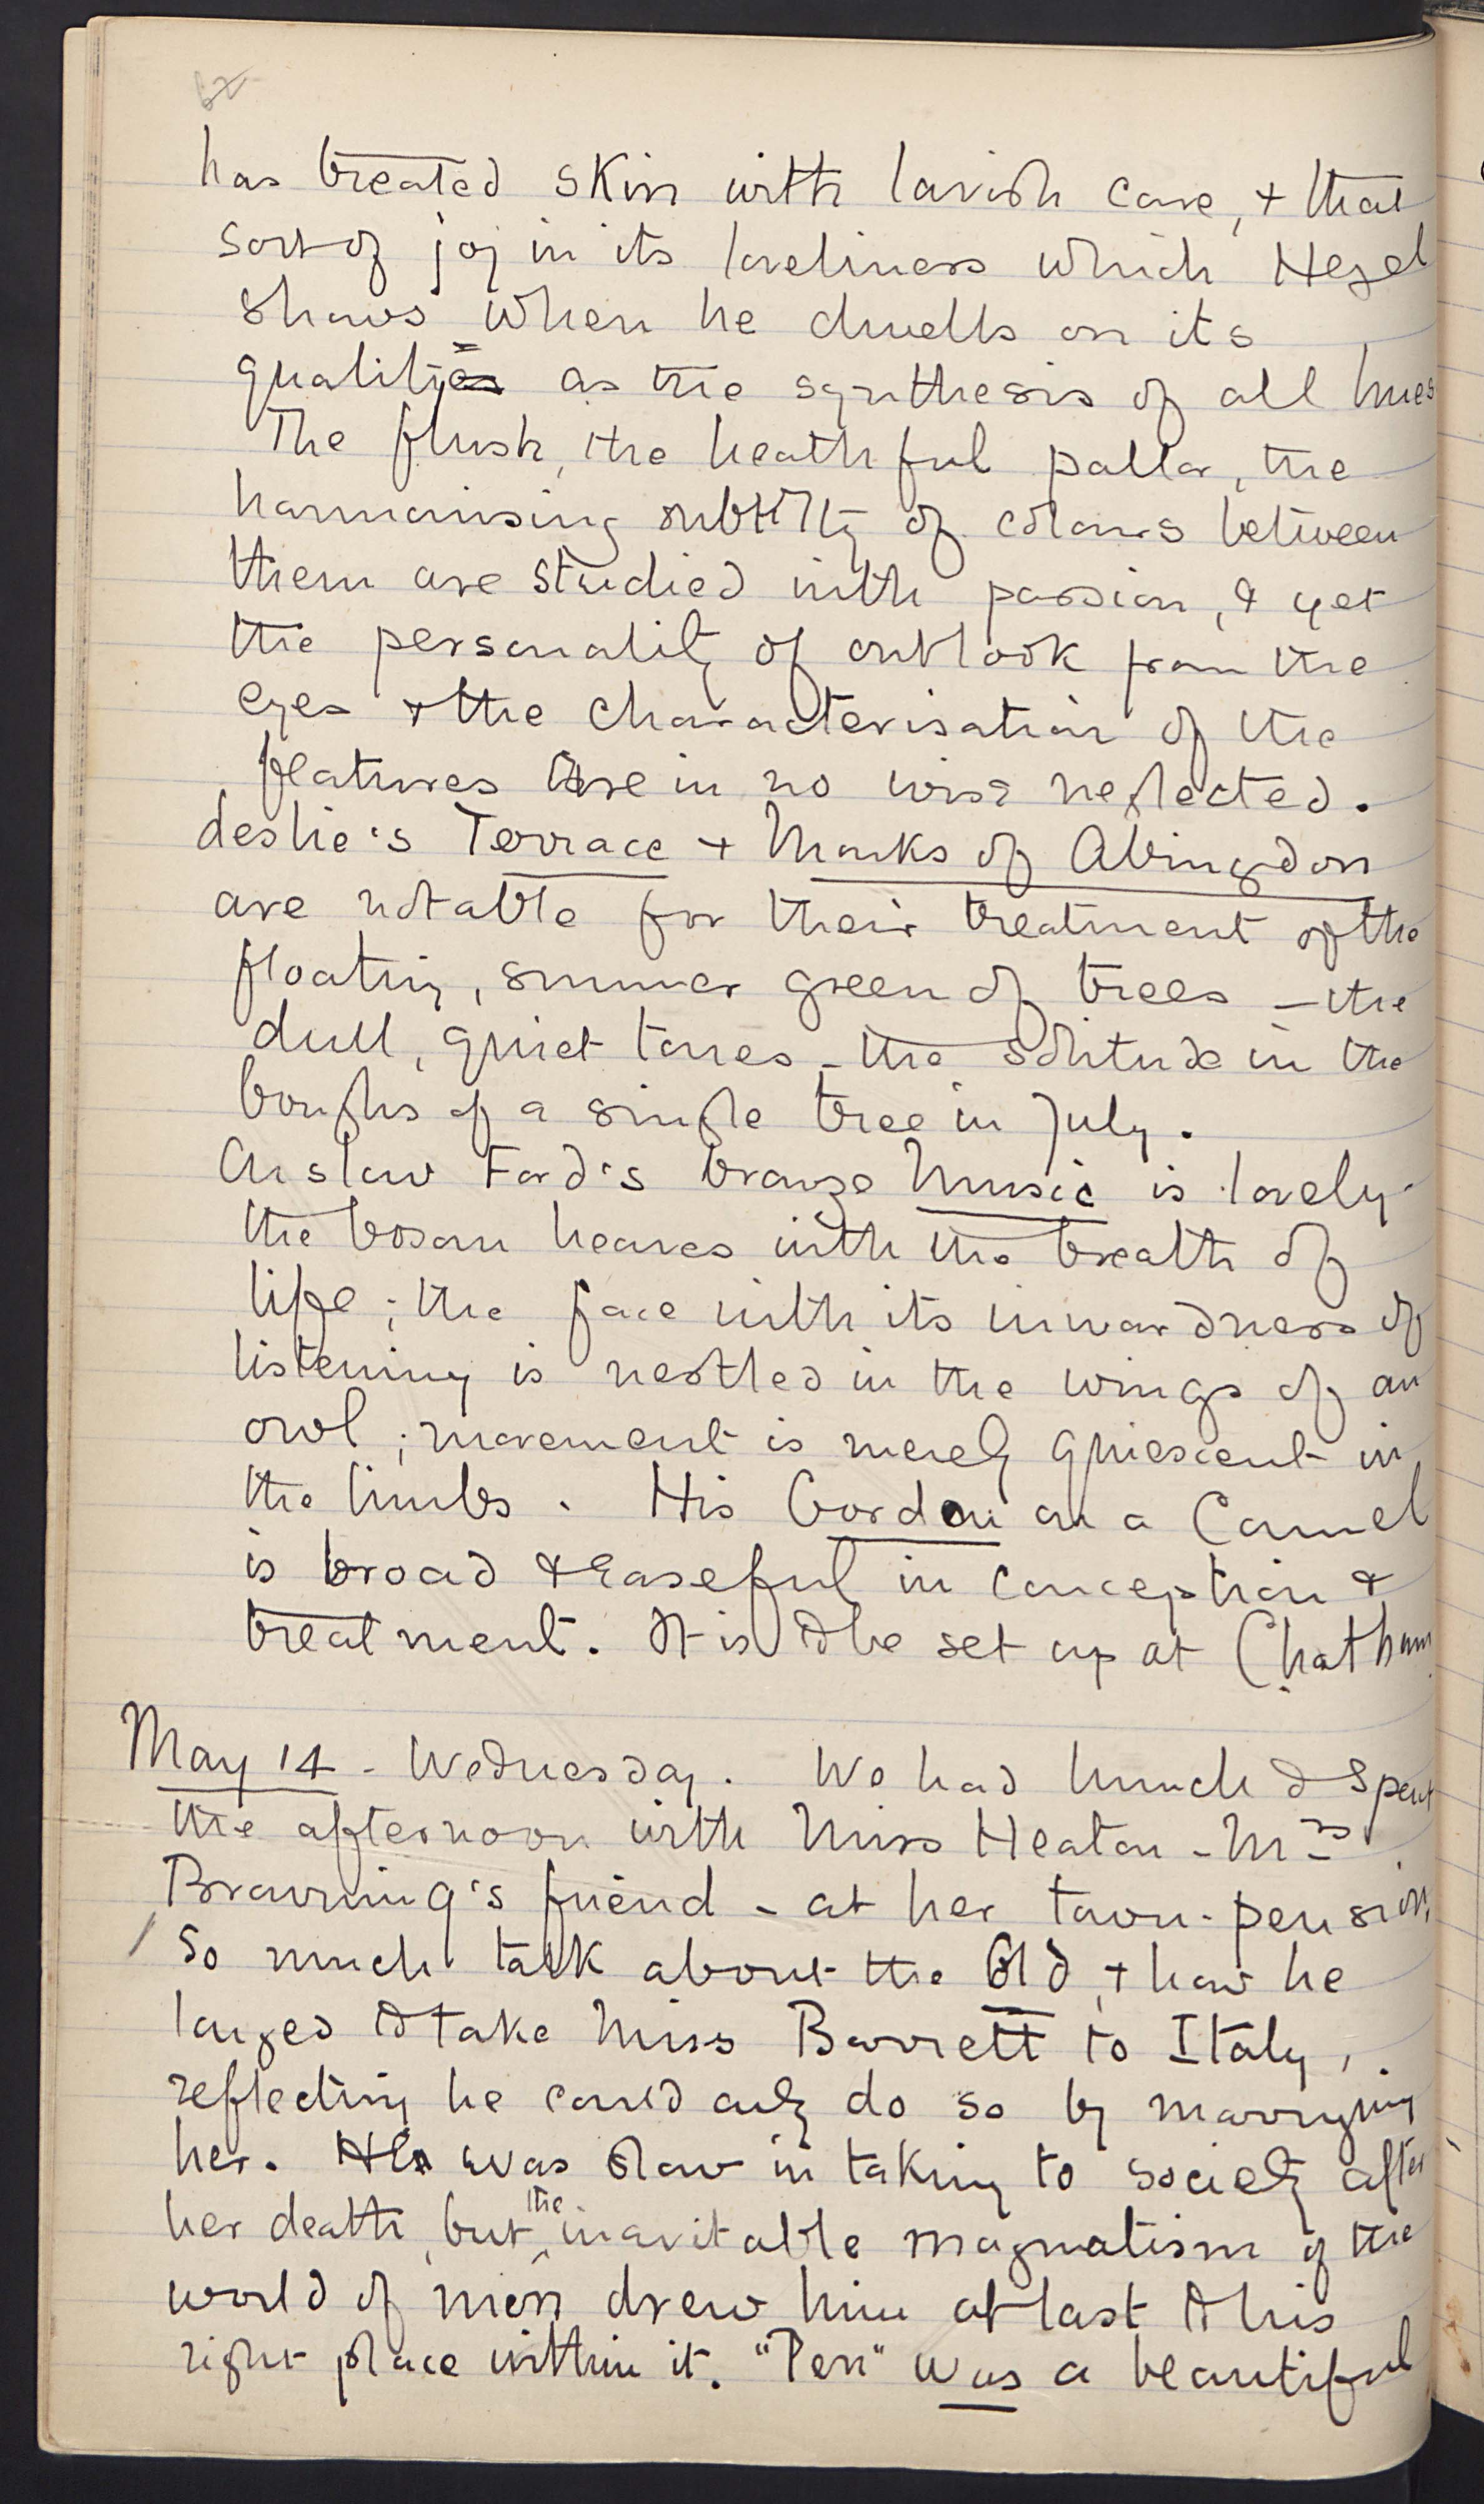 62
has treated skin with lavish care, + that
sort of joy in its loveliness which Hegel
shows when he dwells on its
quality as the synthesis of all hues
The flush, the heathful pallor, the
harmonising subtilty of colours between
them are studied with passion, & yet
the personality of outlook from the
eyes + the characterisation of the
features are in no wise neglected.
Leslie's Terrace + Monks of Abingdon
are notable for their treatment of the
floating, summer green of trees – the
dull, quiet tones – the solitude in the
boughs of a single tree in July.
Onslow Ford's bronze Music is lovely.
the bosom heaves with the breath of
life; the face with its inwardness of
listening is nestled in the wings of an
owl; movement is merely quiescent in
the limbs. His Gordon on a Camel
is broad & easeful in conception &
treatment. It is to be set up at Chatham
May 14 – Wednesday. We had lunch & spent
the afternoon with Miss Heaton – Mrs
Browning's friend – at her town-pension,
So much talk about the Old, + how he
longed to take Miss Barrett to Italy,
reflecting he could only do so by marrying
her. He was slow in taking to society after
her death, but the inevitable magnetism of the
world of men drew him at last to his
right place within it. "Pen" was a beautiful